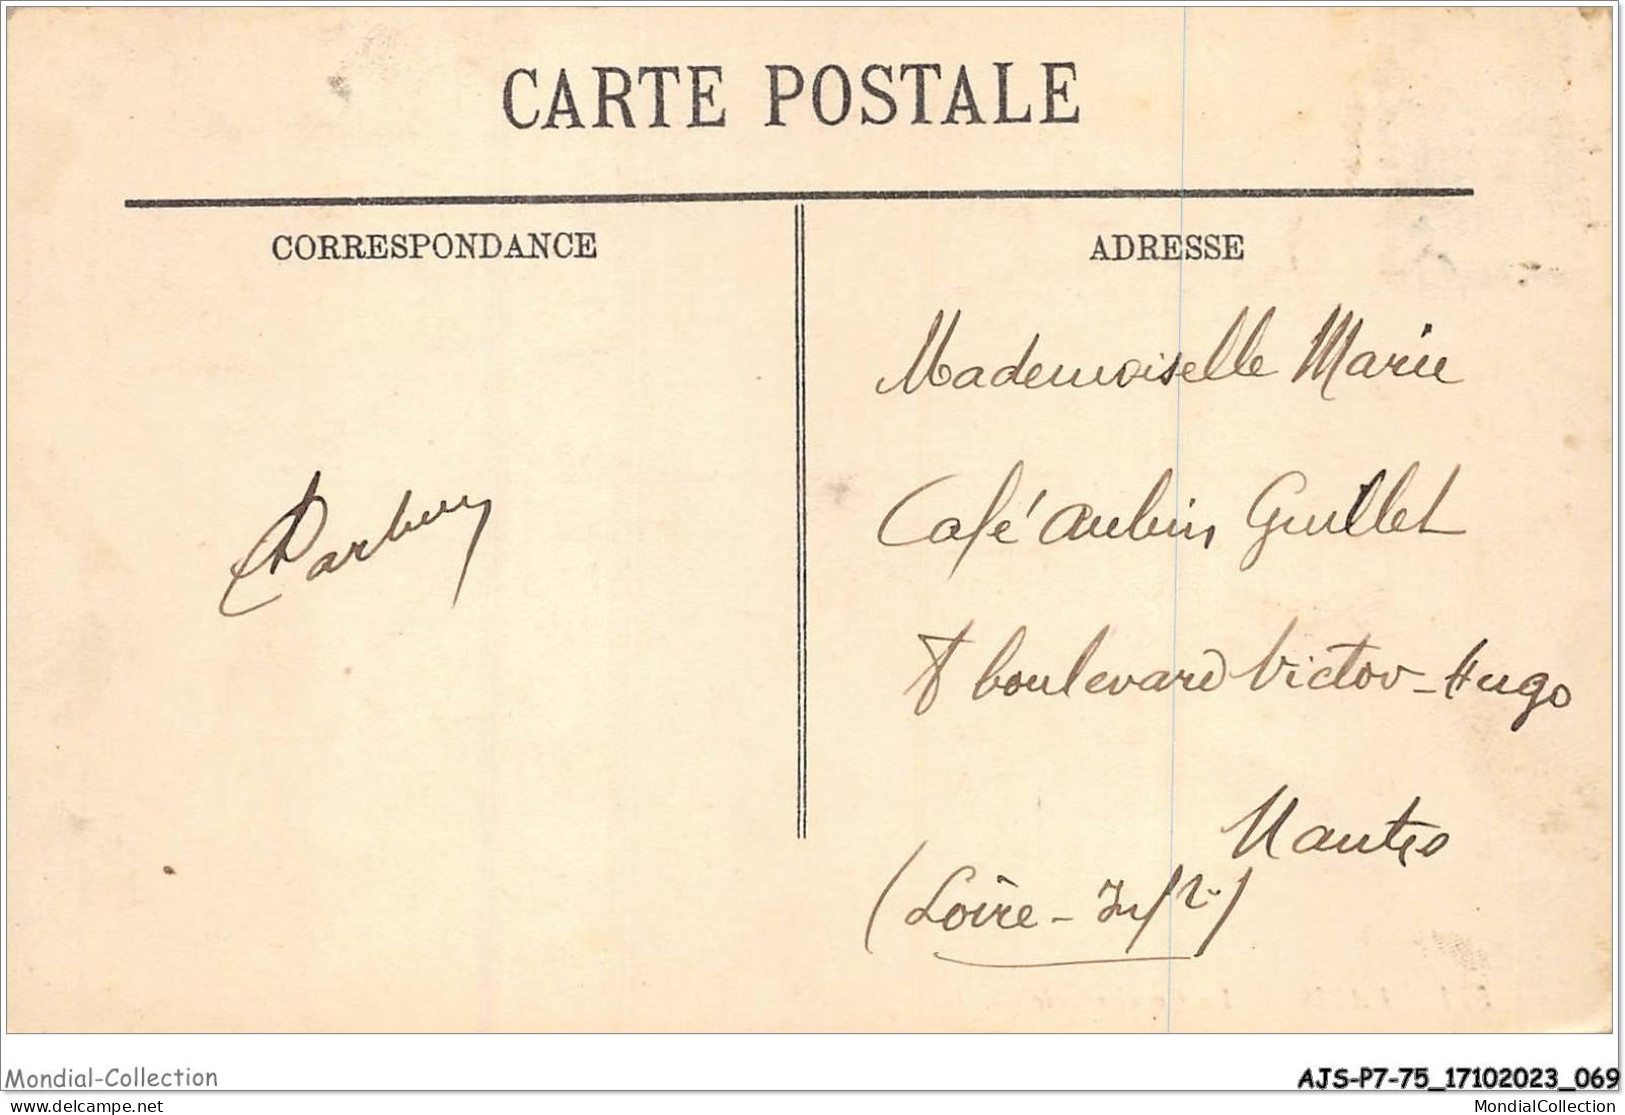 CARTE POSTALE
CORRESPONDANCE
ADRESSE
Mademoiselle Marie
Café Aubin Guillet
8 boulevard Victor-Hugo
Nantes
(Loire-Infre)
Mondial-Collection
AJS-P7-75_17102023_069
www.delcampe.net
MondialCollection